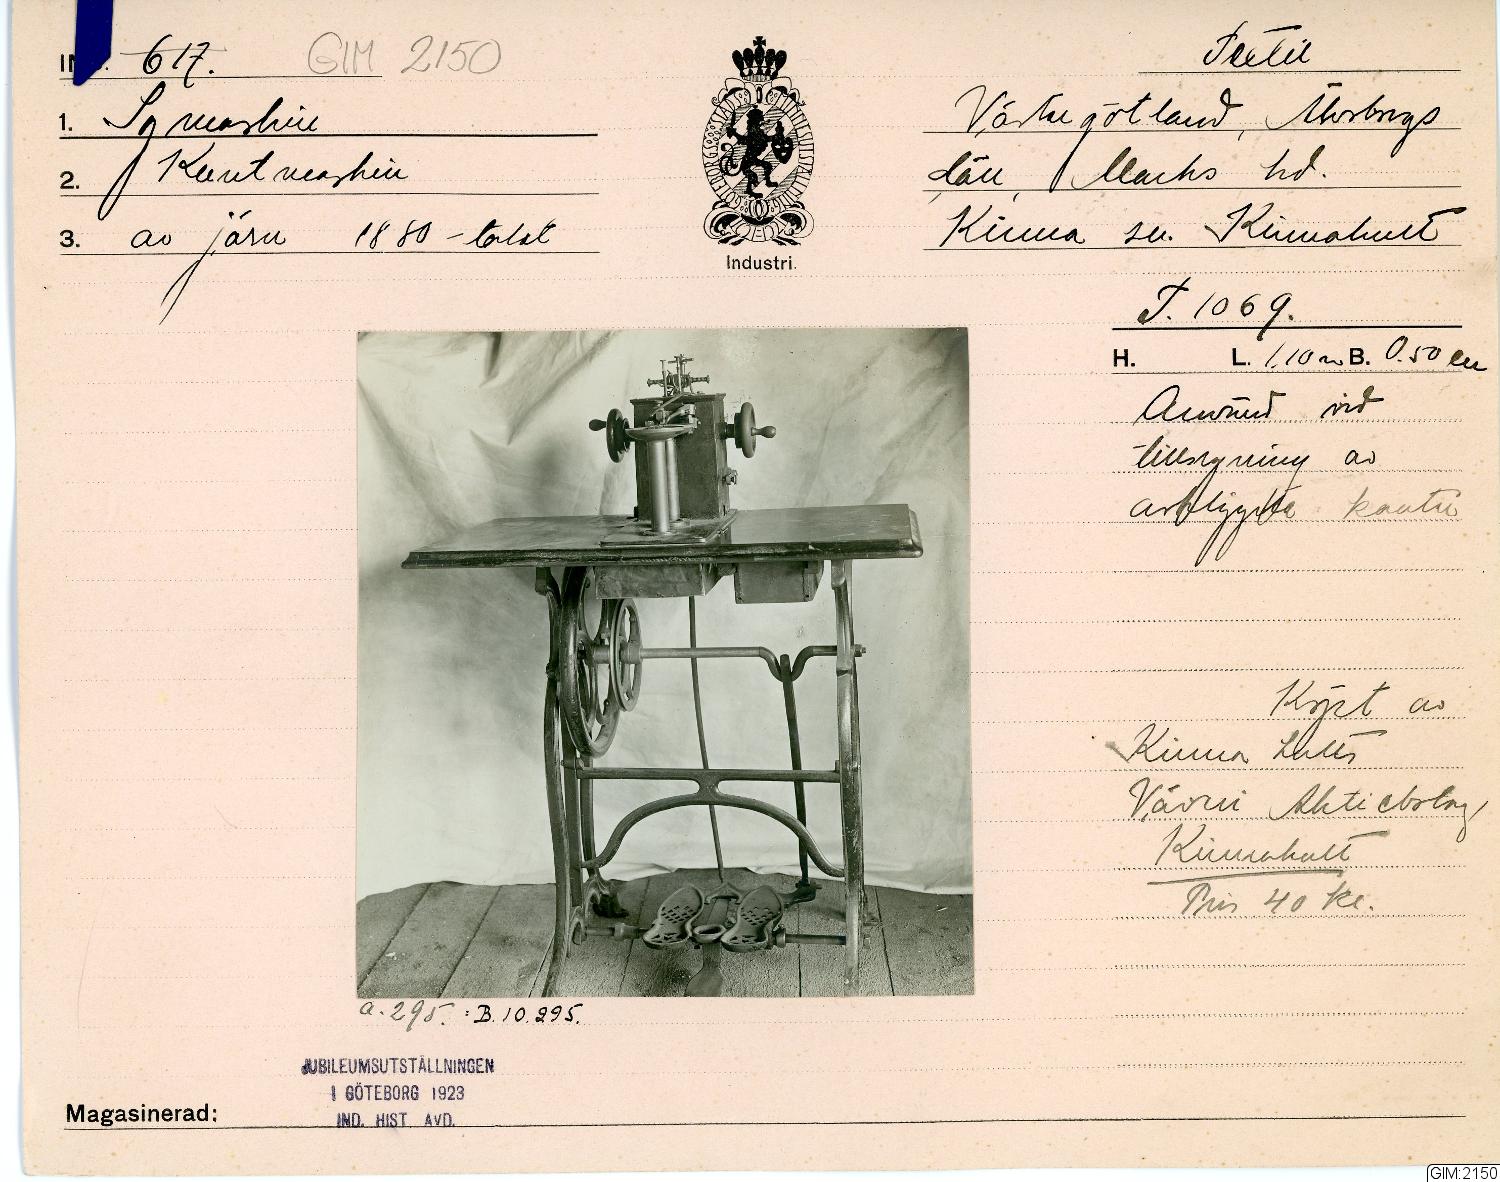 617. GIM 2150
1. Symaskin
2. Kantmaskin
3. av järn 1880-talet
GÖTEBORGS STADS JUBILEUMSUTSTÄLLNING
Industri.
Textil
Västergötland, Älvsborgs
län, Marks hd.
Kinna sn. Kinnahult
T. 1069.
H. L. 1.10 m B. 0.50 cm
Använd vid
tillsyning av
kanter
Köpt av
Kinna
Väveri Aktiebolag,
Kinnahult
Pris 40 kr.
a. 295. : B. 10.295.
JUBILEUMSUTSTÄLLNINGEN
I GÖTEBORG 1923
IND. HIST. AVD.
Magasinerad:
GIM:2150